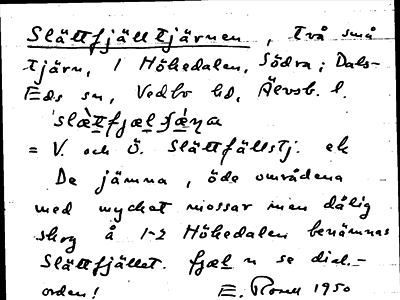 Slättfjälltjärnen, två små
tjärn, i Höhedalen, Södra; Dals-
Eds sn, Vedbo hd, Älvsb. l.
= V. och Ö. Slättfjällstj. ek
De jämna, öde områdena
med mycket mossar men dålig
skog å 1-2 Höhedalen benämnas
Slättfjället. fjæl n se dial.-
orden! E. 1950